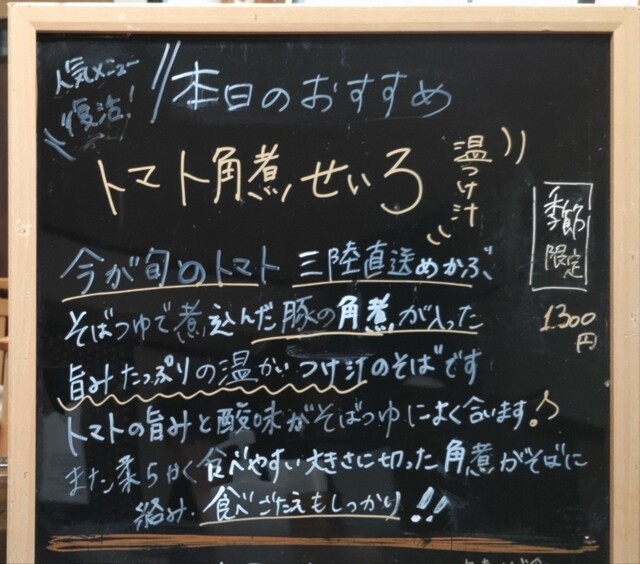 人気メニュー
復活！
本日のおすすめ
トマト角煮せいろ
温つけ汁
季節
限定
1300
円
今が旬のトマト 三陸直送めかぶ、
そばつゆで煮込んだ豚の角煮が入った
旨みたっぷりの温かいつけ汁のそばです
トマトの旨みと酸味がそばつゆによく合います。♪
また柔らかく食べやすい大きさに切った角煮がそばに
絡み、食べごたえもしっかり!!